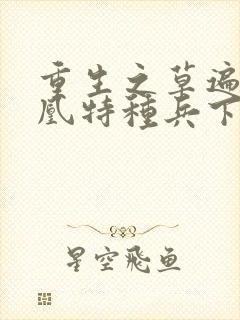 重生之草遍
凰特種兵下
星空飛魚